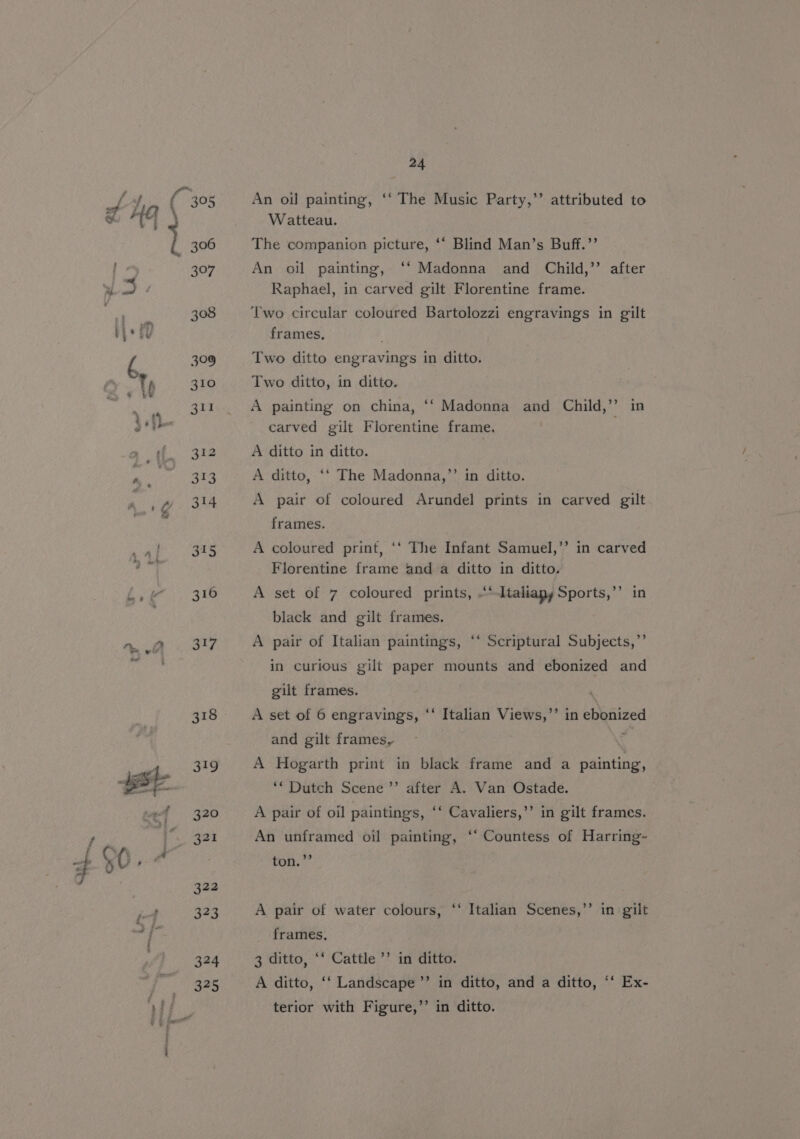 24
305 An oil painting, ‘‘ The Music Party,’’ attributed to
Watteau.
306 The companion picture, ‘‘ Blind Man’s Buff.’’
307 An oil painting, ‘‘ Madonna and Child,’’ after
Raphael, in carved gilt Florentine frame.
308 Two circular coloured Bartolozzi engravings in gilt
frames.
309 Two ditto engravings in ditto.
310 Two ditto, in ditto.
311 A painting on china, ‘‘ Madonna and Child,’’ in
carved gilt Florentine frame.
312 A ditto in ditto.
313 A ditto, ‘‘ The Madonna,’’ in ditto.
314 A pair of coloured Arundel prints in carved gilt
frames.
315 A coloured print, ‘‘ The Infant Samuel,’’ in carved
Florentine frame and a ditto in ditto.
316 A set of 7 coloured prints, ‘‘ Italian Sports,’’ in
black and gilt frames.
317 A pair of Italian paintings, ‘‘ Scriptural Subjects,’’
in curious gilt paper mounts and ebonized and
gilt frames.
318 A set of 6 engravings, ‘‘ Italian Views,’’ in ebonized
and gilt frames.
319 A Hogarth print in black frame and a painting,
‘‘ Dutch Scene ’’ after A. Van Ostade.
320 A pair of oil paintings, ‘‘ Cavaliers,’’ in gilt frames.
321 An unframed oil painting, ‘‘ Countess of Harring-
ton.’’
322
323 A pair of water colours, ‘‘ Italian Scenes,’’ in gilt
frames.
324 3 ditto, ‘‘ Cattle ’’ in ditto.
325 A ditto, ‘‘ Landscape ’’ in ditto, and a ditto, ‘‘ Ex-
terior with Figure,’’ in ditto.